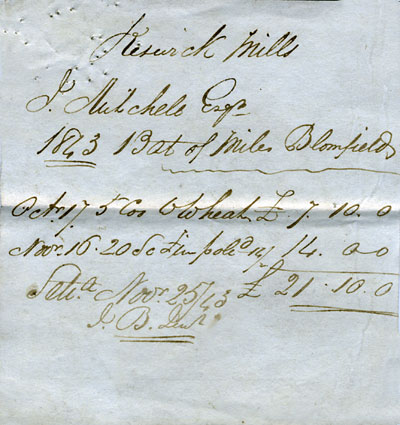 Keswick Mills
J. Mitchele Esqr
1843 Bat of Miles Blomfield
Octr 17. 5 Cos Wheat £. 7. 10. 0
Novr. 16. 20 Sc 14/ 14. 0 0
Novr 25/43 £ 21. 10. 0
J. B.